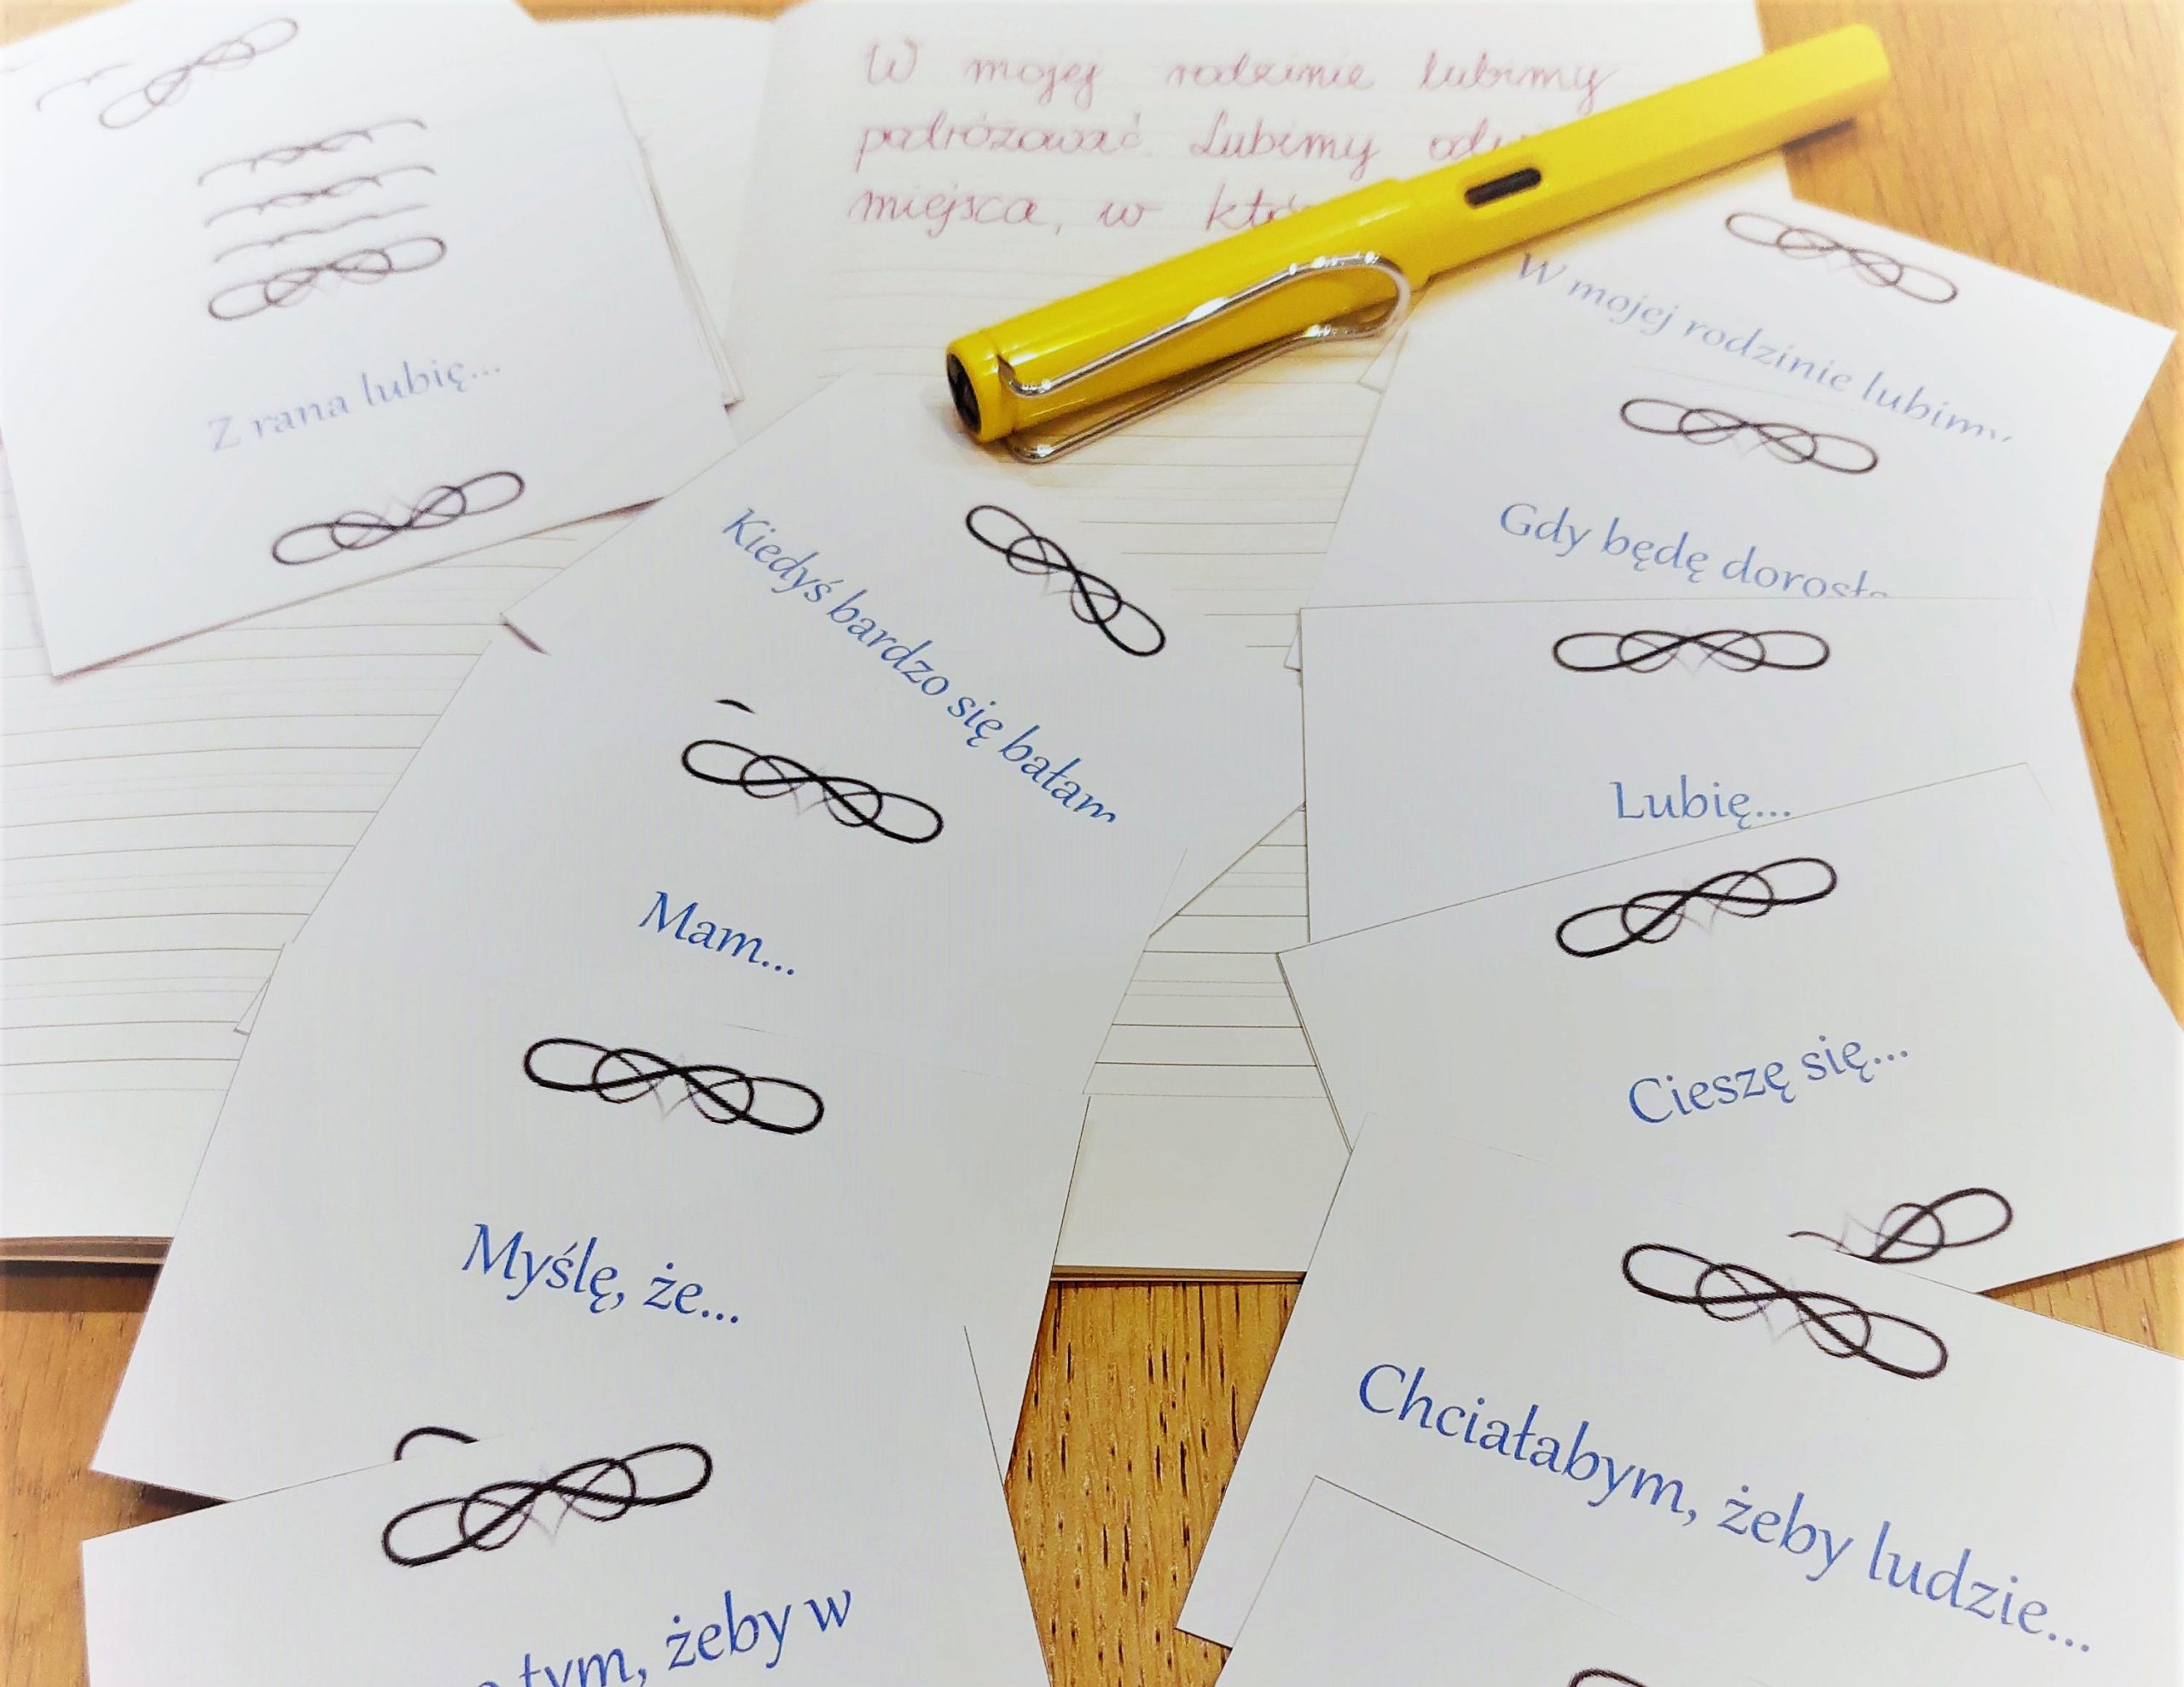 W mojej rodzinie lubimy
podróżować. Lubimy
miejsca, w
Z rana lubię...
W mojej rodzinie
Gdy będę
Kiedyś bardzo się bałam
Lubię...
Mam...
Cieszę się...
Myślę, że...
Chciałabym, żeby ludzie...
tym, żeby w